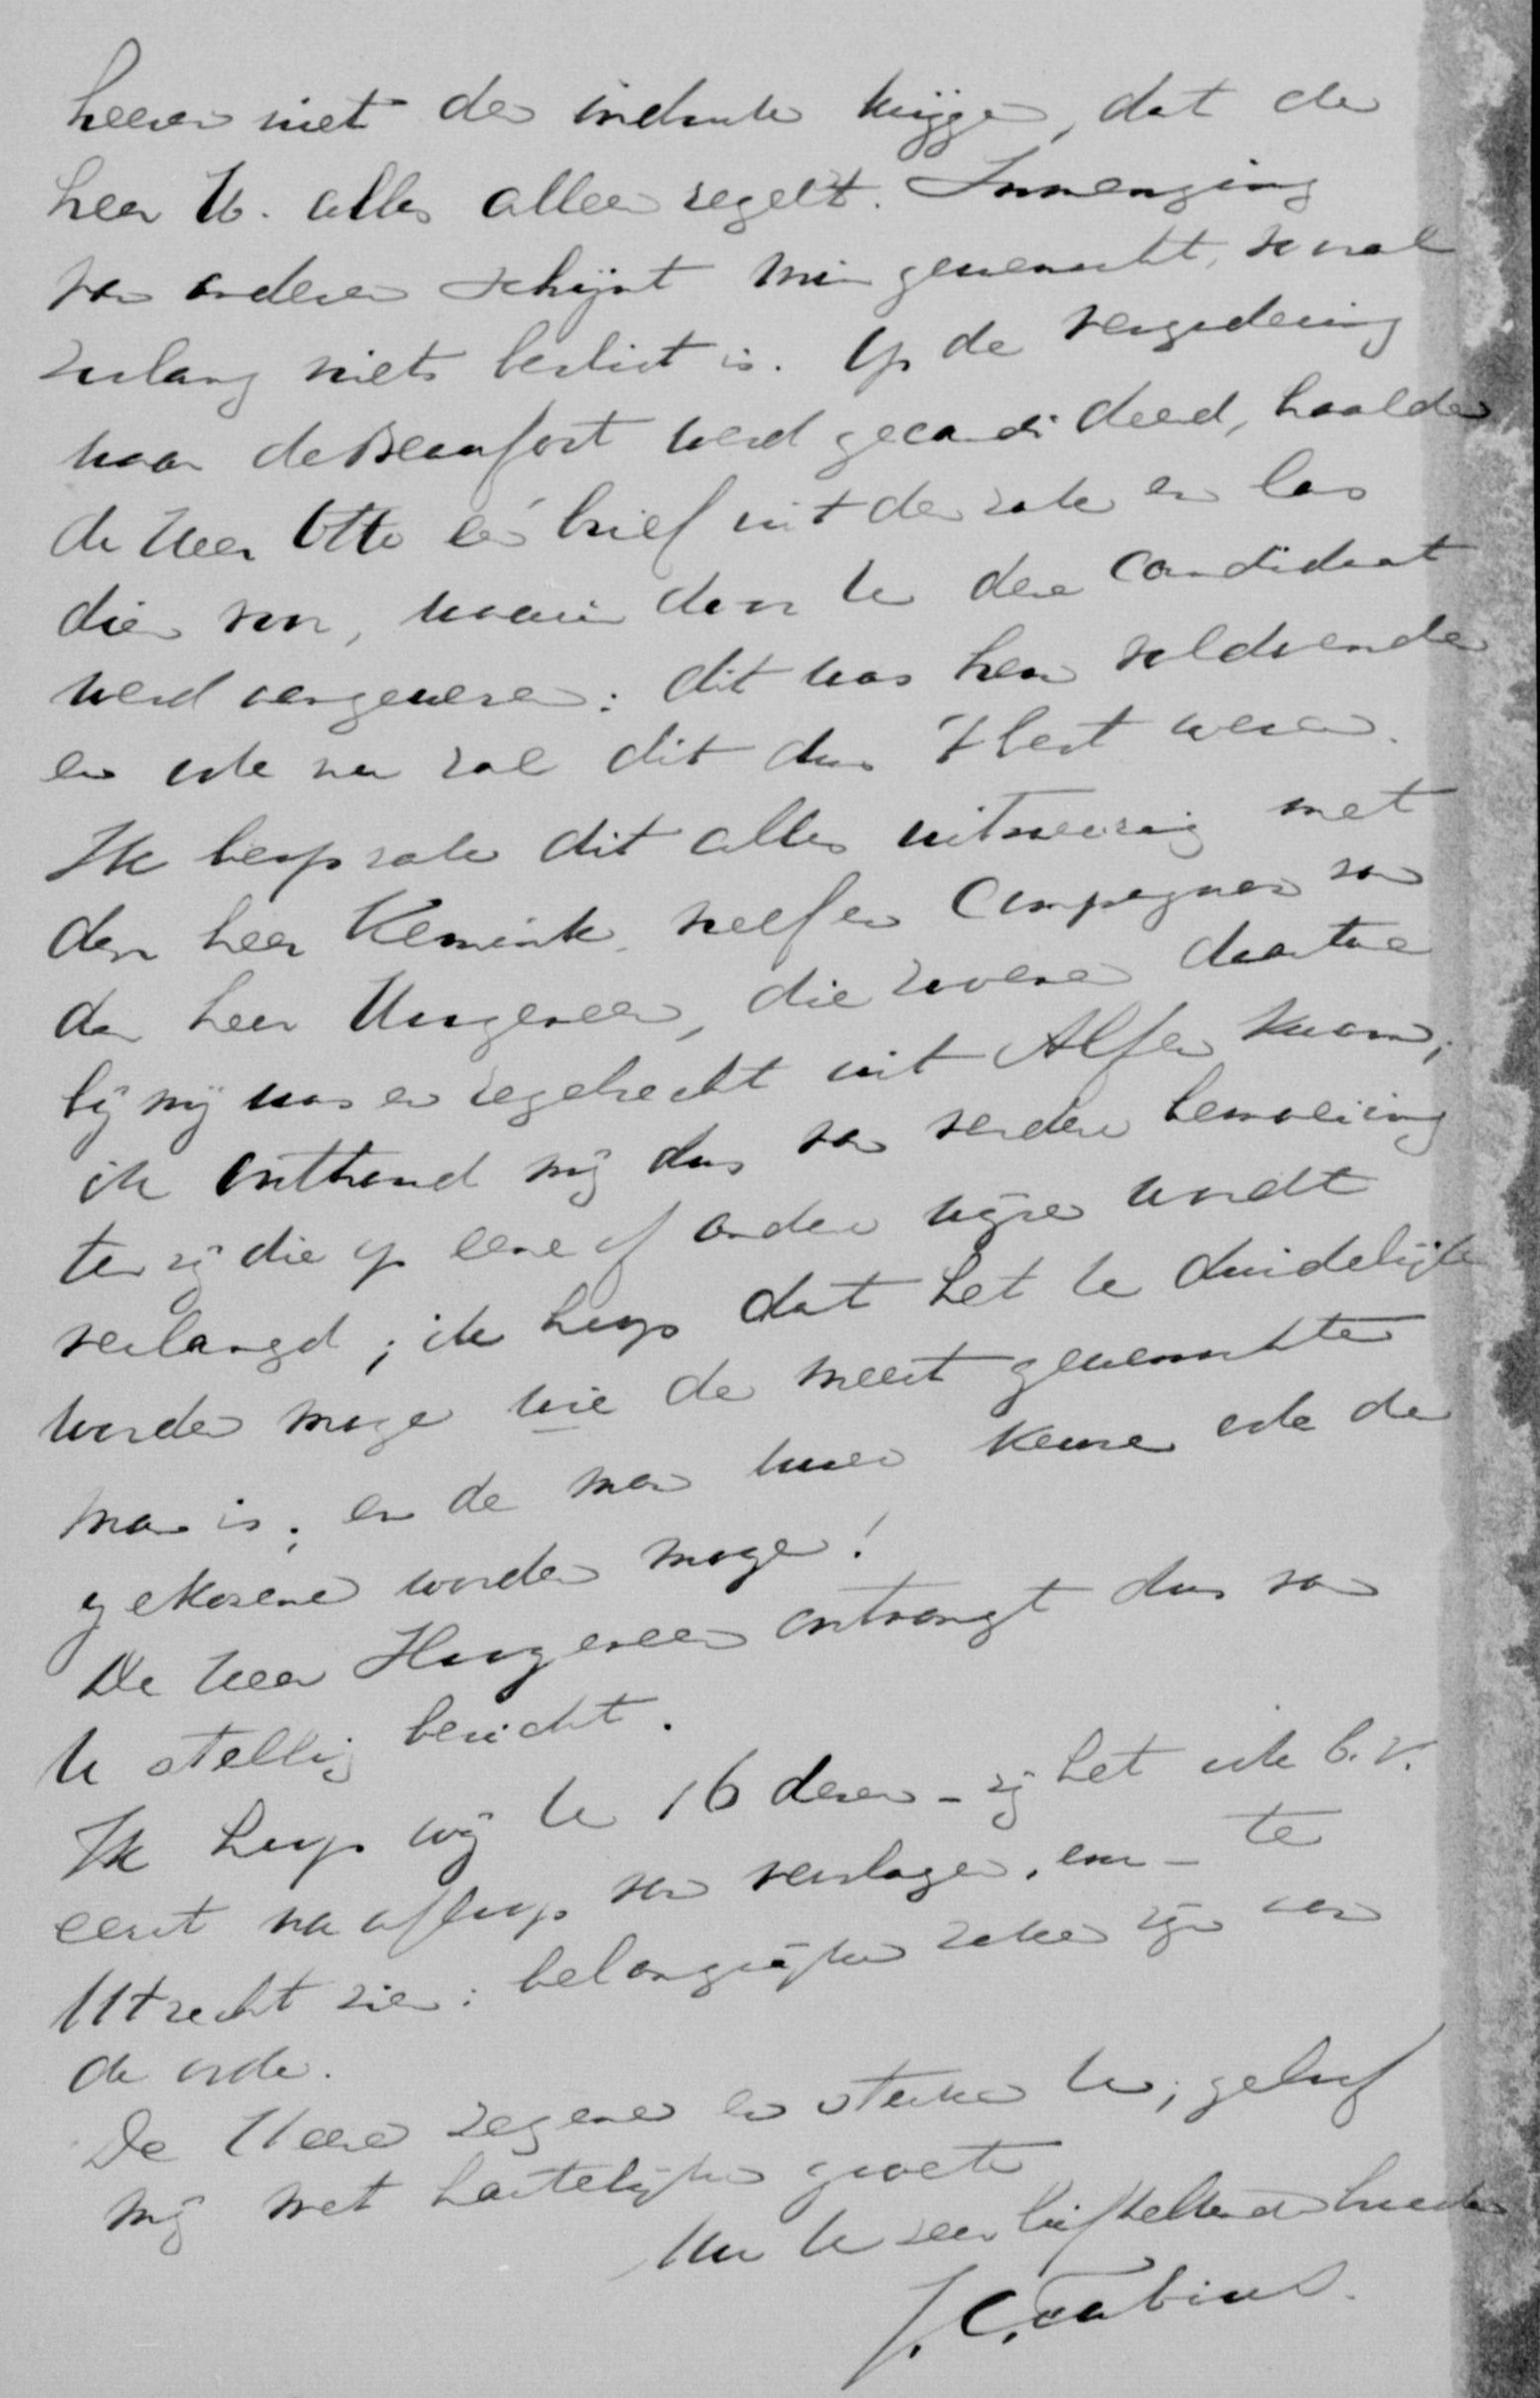 heeren niet den indruk krijgen, dat de
heer U. alles alleen regelt. Inmenging
van anderen schijnt mij gewenscht, vooral
zoolang niets beslist is. Op de vergadering
waar de Beaufort werd gecandideerd, haalde
de Heer Otto een brief uit den zak en las
dien voor, waarin door U deze candidaat
werd aangewezen: dit was hen voldoende
en ook nu zal dit dus 't best wezen.
Ik besprak dit alles uitvoerig met
den heer Kemink, neef en Compagnon van
den heer Hoogeveen, die zooeven daartoe
bij mij was en regelrecht uit Alfen kwam;
ik onthoud mij dus van verdere bemoeiing
tenzij die op eene of andere wijze wordt
verlangd; ik hoop dat het U duidelijk
worden moge wie de meest gewenschte
man is; en de man Uwer keuze ook de
gekozene worden moge!
De Heer Hoogeveen ontvangt dus van
U stellig bericht.
Ik hoop wij U 16 dezer - zij het ook b.v.
eerst na afloop van verslagen, enz - te
Utrecht zien: belangrijke zaken zijn aan
de orde.
De Heere zegene en sterke U; geloof
mij met hartelijke groete
Uw U zeer liefhebbende broeder
J. C. Fabius.